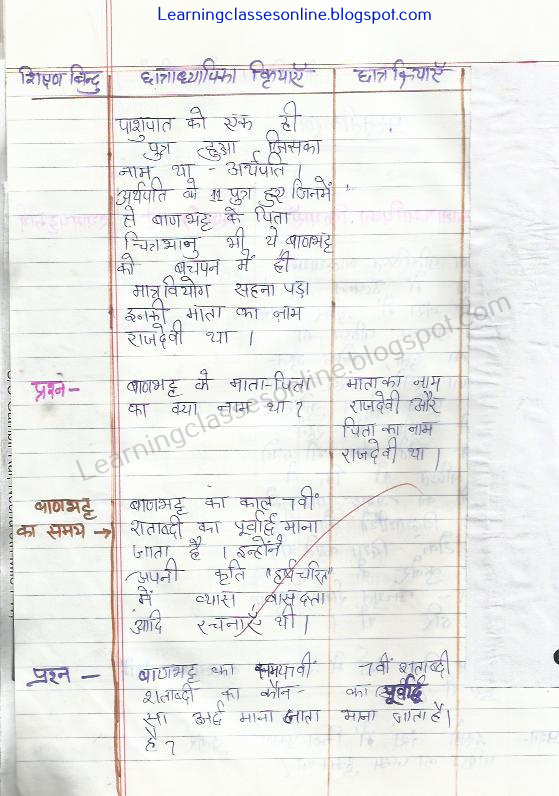 Learningclassesonline.blogspot.com
शिक्षण बिन्दु छात्राध्यापिका क्रियाएँ छात्र क्रियाएँ
पाशुपात को एक ही
पुत्र हुआ जिसका
नाम था - अर्थपति ।
अर्थपति के 11 पुत्र हुए जिनमें
से बाणभट्ट के पिता
चित्रभानु भी थे बाणभट्ट
को बचपन में ही
मातृ वियोग सहना पड़ा
इनकी माता का नाम
राजदेवी था ।
प्रश्न - बाणभट्ट के माता-पिता माता का नाम
का क्या नाम था ? राजदेवी और
पिता का नाम
राजदेवी था ।
बाणभट्ट बाणभट्ट का काल 7वीं
का समय → शताब्दी का पूर्वार्द्ध माना
जाता है । इन्होंने
अपनी कृति "हर्षचरित"
में व्यास वासदत्ता
आदि रचनाएँ थी ।
प्रश्न - बाणभट्ट का समय 7वीं 7वीं शताब्दी
शताब्दी का कौन- का पूर्वार्द्ध
सा अर्द्ध माना जाता माना जाता है।
है ?
Learningclassesonline.blogspot.com